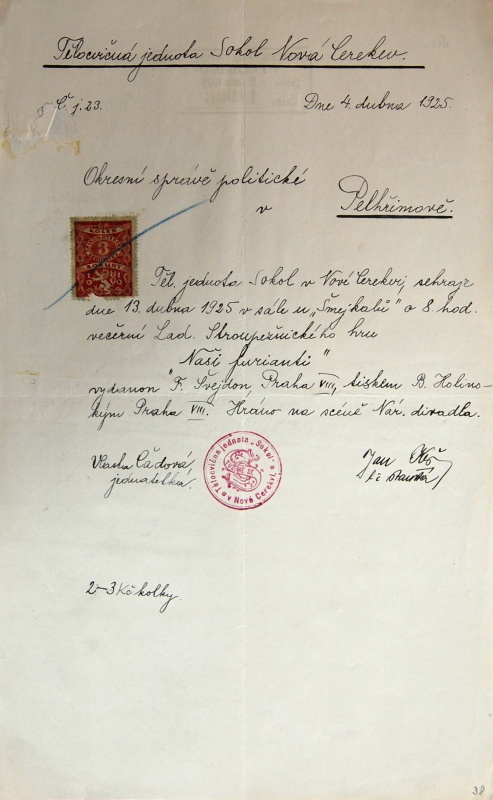 Tělocvičná jednota Sokol Nová Cerekev.
Č. j. 23.
Dne 4. dubna 1925.
Okresní správě politické
v Pelhřimově.
KOLEK
3
KORUNY
Těl. jednota Sokol v Nové Cerekvi, sehraje
dne 13. dubna 1925 v sále u „Šmejkalů" o 8. hod.
večerní Lad. Stroupežnického hru
„Naši furianti"
vydanou F. Švejdou Praha VIII, tiskem B. Holin-
kým Praha VIII. Hráno na scéně Nár. divadla.
Vlasta Čadová,
jednatelka.
Tělocvičná jednota „Sokol"
v Nové Cerekvi.
Jan
t. č. starosta
2-3 Kč kolky.
38